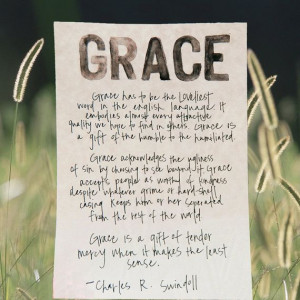 GRACE
Grace has to be the loveliest
word in the english language. It
embodies almost every attractive
quality we hope to find in others. Grace is
a gift of the humble to the humiliated.
Grace acknowledges the ugliness
of sin by choosing to see beyond it. Grace
accepts people as worthy of kindness
despite whatever grime or hard-shell
casing keeps him or her separated
from the rest of the world.
Grace is a gift of tender
mercy when it makes the least
sense.
-Charles R. Swindoll